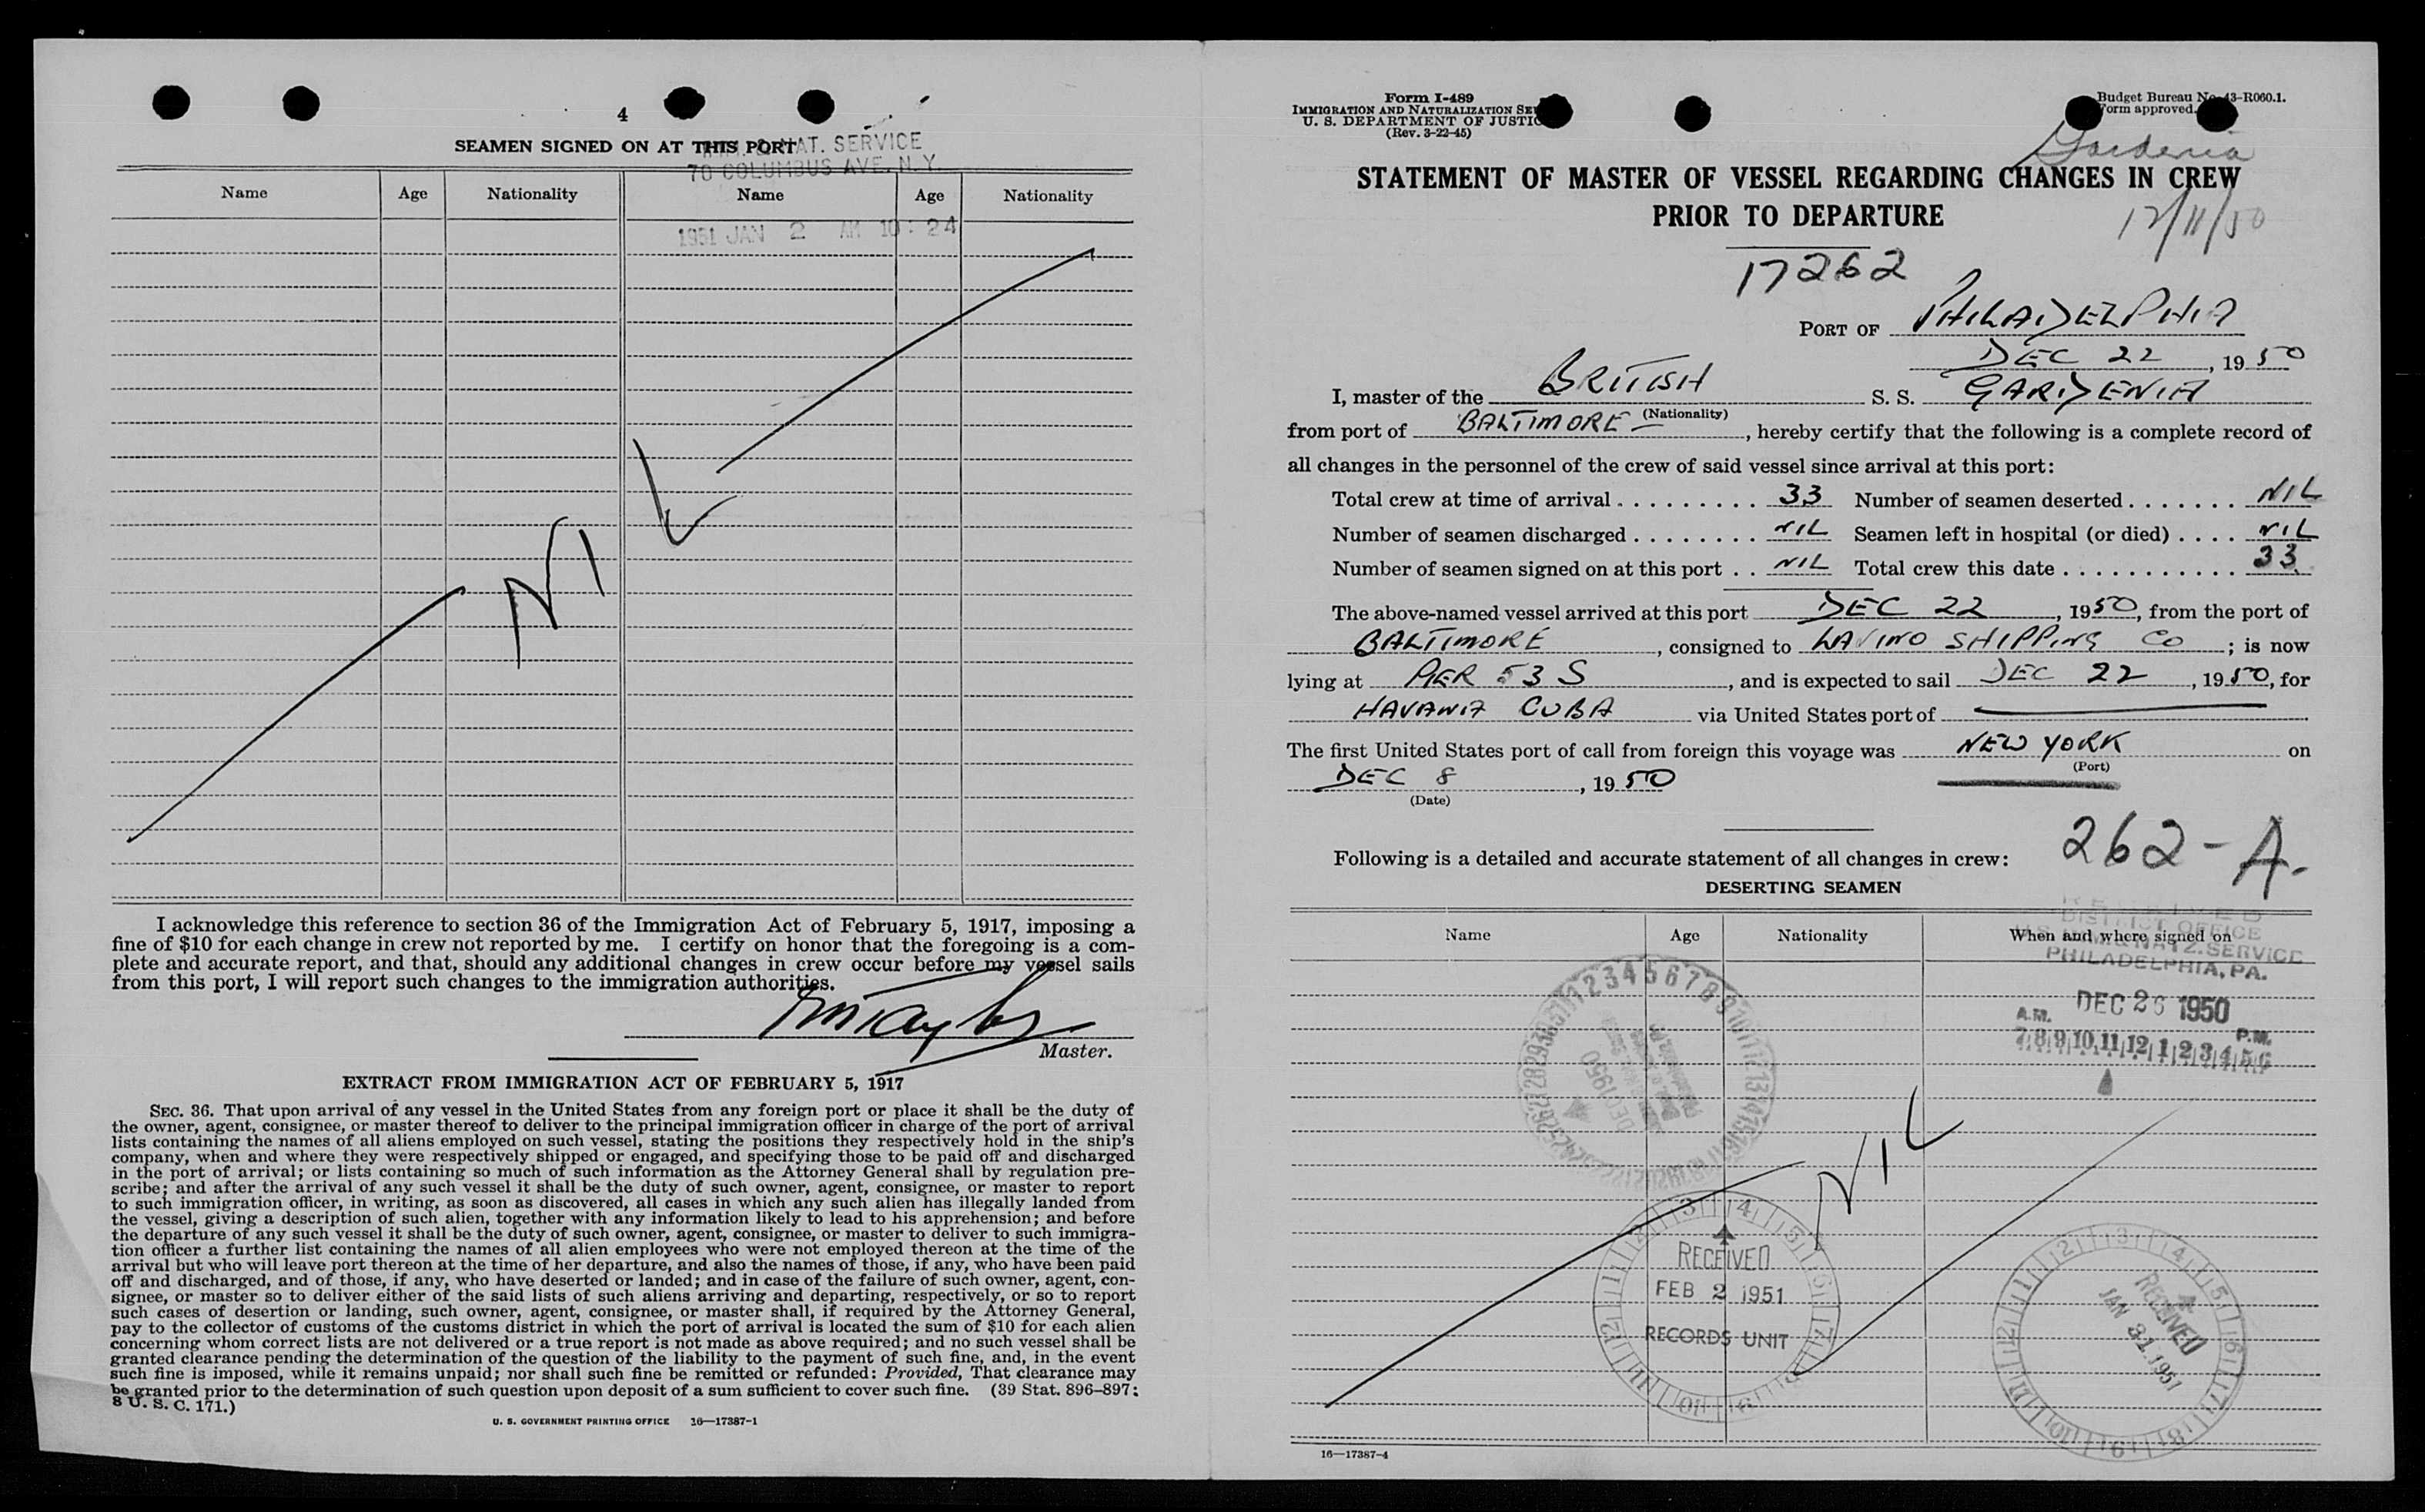 4
SEAMEN SIGNED ON AT THIS PORT
NAT. SERVICE
70 COLUMBUS AVE. N.Y.
Name Age Nationality Name Age Nationality
1951 JAN 2 AM 10:24
NIL
I acknowledge this reference to section 36 of the Immigration Act of February 5, 1917, imposing a
fine of $10 for each change in crew not reported by me. I certify on honor that the foregoing is a com-
plete and accurate report, and that, should any additional changes in crew occur before my vessel sails
from this port, I will report such changes to the immigration authorities.
Taylor
Master.
EXTRACT FROM IMMIGRATION ACT OF FEBRUARY 5, 1917
SEC. 36. That upon arrival of any vessel in the United States from any foreign port or place it shall be the duty of
the owner, agent, consignee, or master thereof to deliver to the principal immigration officer in charge of the port of arrival
lists containing the names of all aliens employed on such vessel, stating the positions they respectively hold in the ship's
company, when and where they were respectively shipped or engaged, and specifying those to be paid off and discharged
in the port of arrival; or lists containing so much of such information as the Attorney General shall by regulation pre-
scribe; and after the arrival of any such vessel it shall be the duty of such owner, agent, consignee, or master to report
to such immigration officer, in writing, as soon as discovered, all cases in which any such alien has illegally landed from
the vessel, giving a description of such alien, together with any information likely to lead to his apprehension; and before
the departure of any such vessel it shall be the duty of such owner, agent, consignee, or master to deliver to such immigra-
tion officer a further list containing the names of all alien employees who were not employed thereon at the time of the
arrival but who will leave port thereon at the time of her departure, and also the names of those, if any, who have been paid
off and discharged, and of those, if any, who have deserted or landed; and in case of the failure of such owner, agent, con-
signee, or master so to deliver either of the said lists of such aliens arriving and departing, respectively, or so to report
such cases of desertion or landing, such owner, agent, consignee, or master shall, if required by the Attorney General,
pay to the collector of customs of the customs district in which the port of arrival is located the sum of $10 for each alien
concerning whom correct lists are not delivered or a true report is not made as above required; and no such vessel shall be
granted clearance pending the determination of the question of the liability to the payment of such fine, and, in the event
such fine is imposed, while it remains unpaid; nor shall such fine be remitted or refunded: Provided, That clearance may
be granted prior to the determination of such question upon deposit of a sum sufficient to cover such fine. (39 Stat. 896–897;
8 U. S. C. 171.)
U. S. GOVERNMENT PRINTING OFFICE 16—17387-1
Form I-489
IMMIGRATION AND NATURALIZATION
U. S. DEPARTMENT OF JUSTIC
(Rev. 3-22-45)
Budget Bureau No. 43-R060.1.
Form approved.
Gardenia
STATEMENT OF MASTER OF VESSEL REGARDING CHANGES IN CREW
PRIOR TO DEPARTURE
12/11/50
17262
PORT OF PHILADELPHIA
DEC 22, 1950
I, master of the BRITISH S. S. GARDENIA
(Nationality)
from port of BALTIMORE, hereby certify that the following is a complete record of
all changes in the personnel of the crew of said vessel since arrival at this port:
Total crew at time of arrival . . . . . . . . . . 33 Number of seamen deserted . . . . . . . NIL
Number of seamen discharged . . . . . . . . NIL Seamen left in hospital (or died) . . . . NIL
Number of seamen signed on at this port . . NIL Total crew this date . . . . . . . . . . . 33
The above-named vessel arrived at this port DEC 22, 1950, from the port of
BALTIMORE, consigned to LAVINO SHIPPING CO; is now
lying at PIER 53 S, and is expected to sail DEC 22, 1950, for
HAVANA CUBA via United States port of
The first United States port of call from foreign this voyage was NEW YORK on
(Port)
DEC 8, 1950
(Date)
262-A.
Following is a detailed and accurate statement of all changes in crew:
DESERTING SEAMEN
Name Age Nationality When and where signed on
RECEIVED
DISTRICT OFFICE
U.S. IMM. & NATZ. SERVICE
PHILADELPHIA, PA.
DEC 26 1950
A.M. P.M.
7 8 9 10 11 12 1 2 3 4 5 6
DEC 1950
NIL
RECEIVED
FEB 2 1951
RECORDS UNIT
RECEIVED
JAN 31 1951
16—17387-4